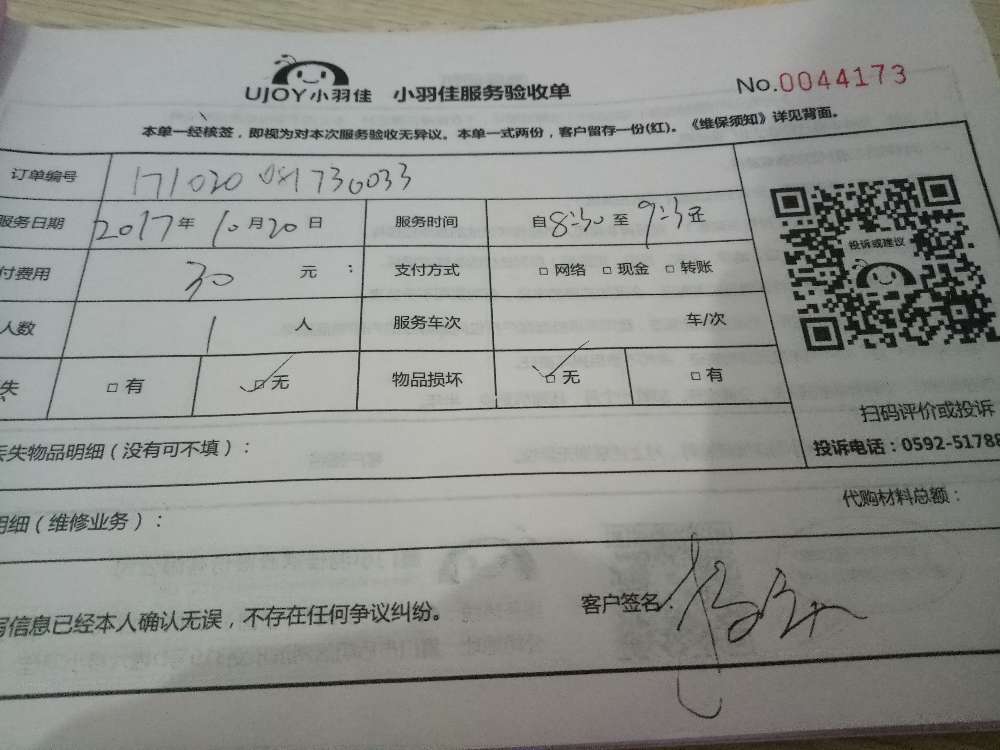 UJOY小羽佳 小羽佳服务验收单 No.0044173
本单一经核签，即视为对本次服务验收无异议。本单一式两份，客户留存一份(红)。《维保须知》详见背面。
订单编号 171020 081730033
服务日期 2017年10月20日 服务时间 自8:30至9:30
付费用 30 元： 支付方式 □网络 □现金 □转账
人数 1 人 服务车次 车/次
失 □有 □无 物品损坏 □无 □有
投诉或建议
扫码评价或投诉
投诉电话：0592-51788
丢失物品明细（没有可不填）：
代购材料总额：
明细（维修业务）：
写信息已经本人确认无误，不存在任何争议纠纷。 客户签名：